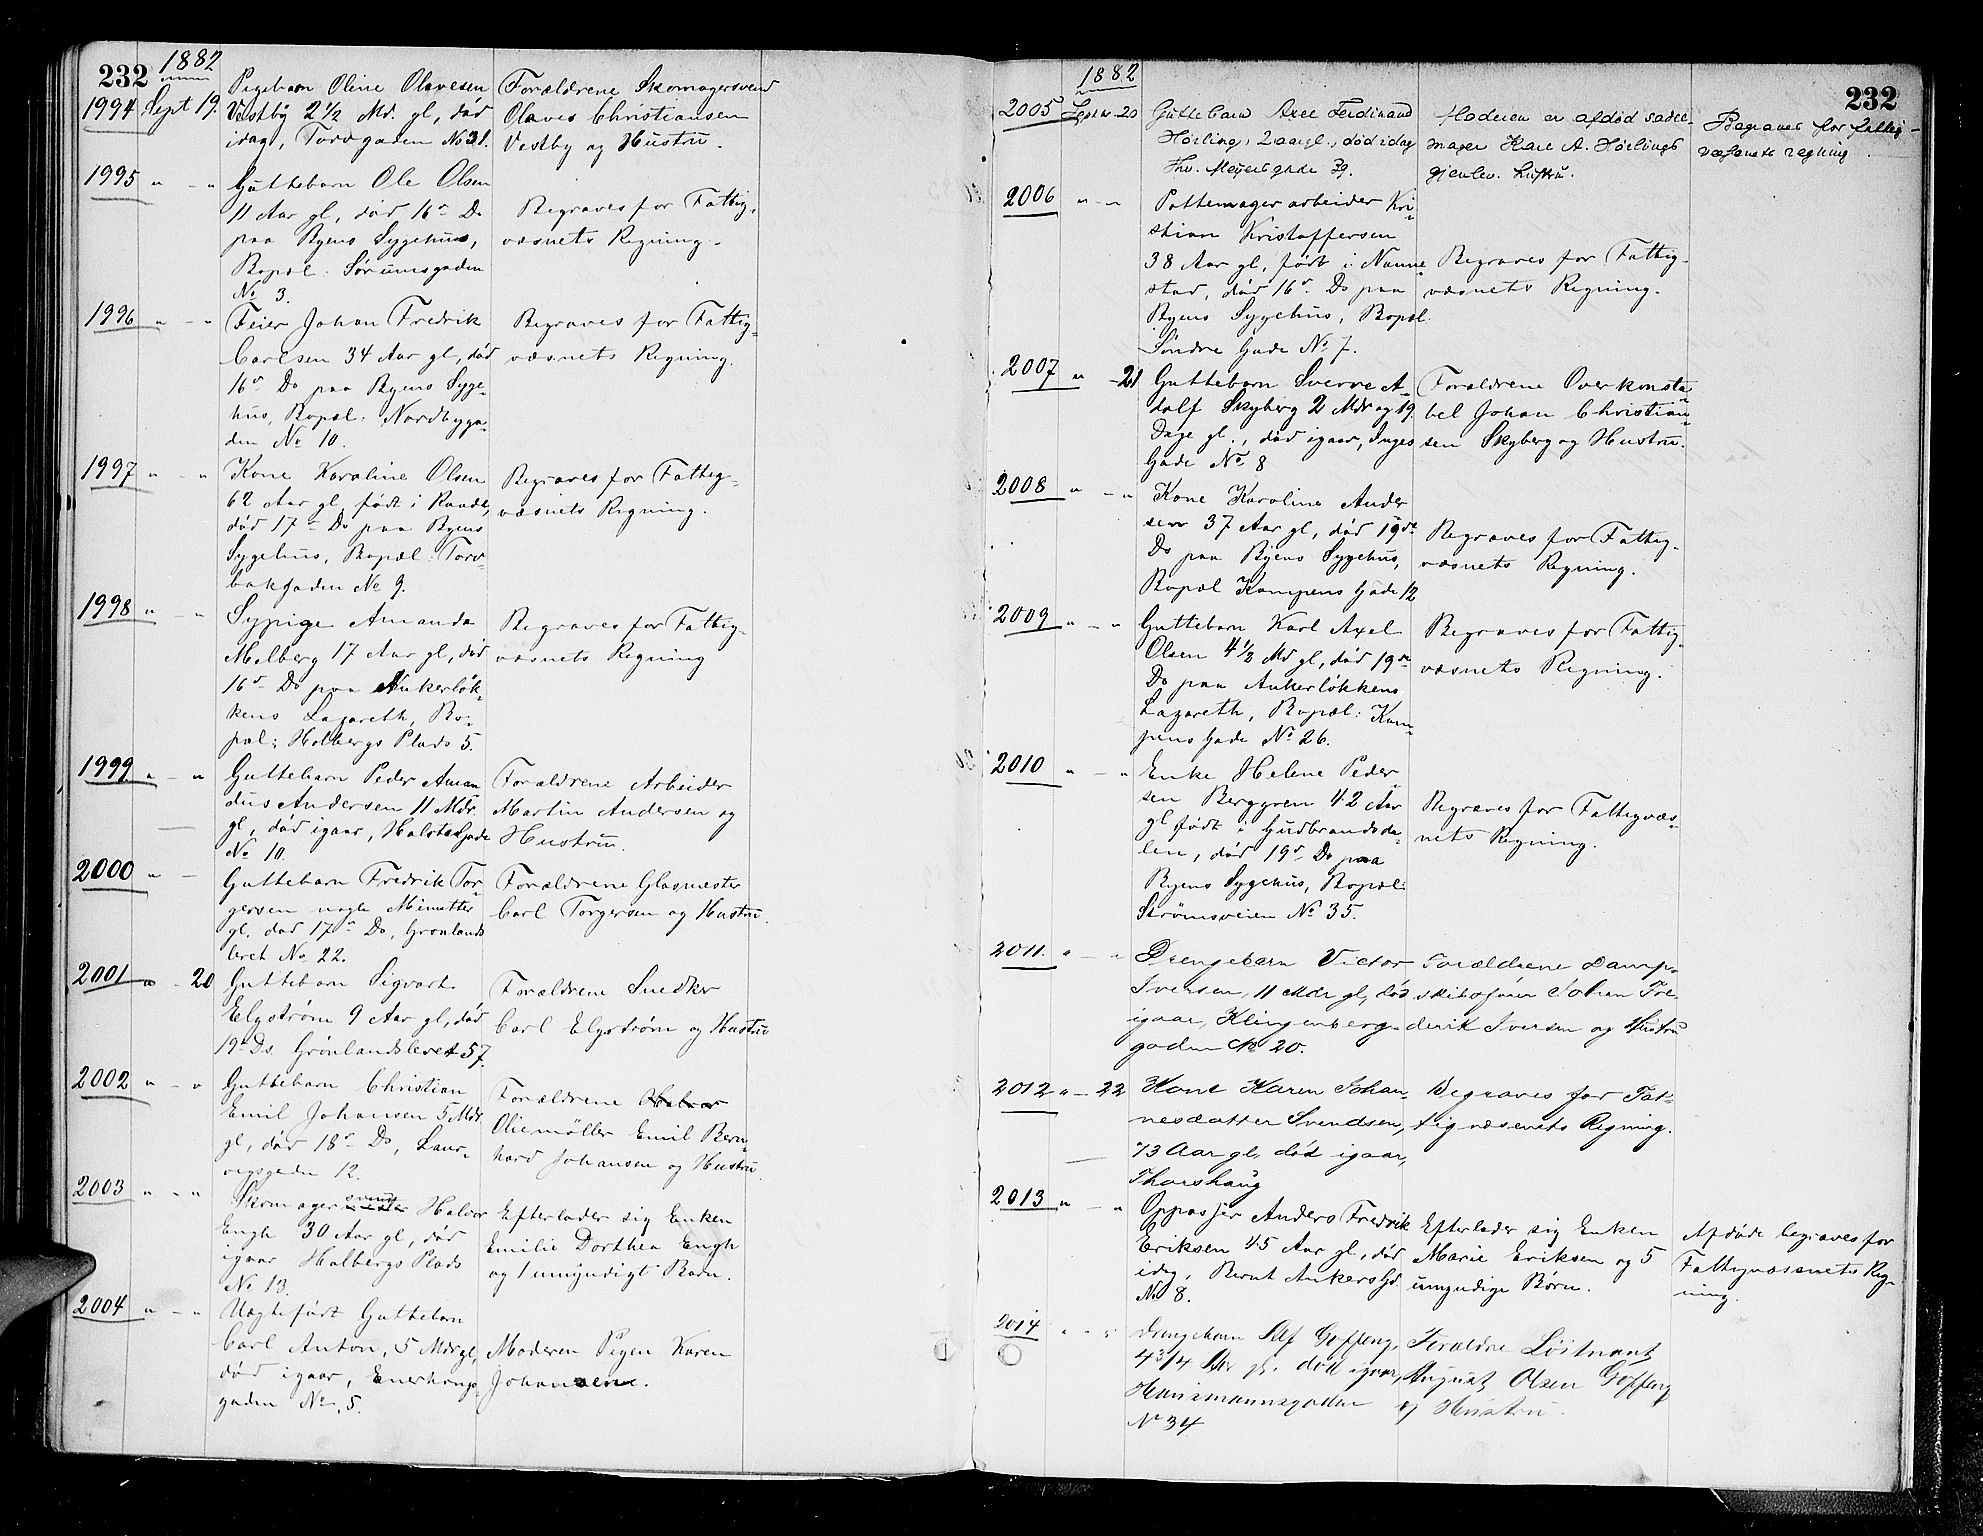 232
1882
1994 Sept 19.
Pigebarn Oline Olavesen
Vestby 2 1/2 Md. gl, död
idag, Torvgaden No 31.
Forældrene Skomagersvend
Olaves Christiansen
Vestby og Hustru.
1995 " - "
Guttebarn Ole Olsen
11 Aar gl, död 16de Ds
paa Byens Sygehus,
Bopæl: Sörumsgaden
No 3.
Begraves for Fattig-
væsnets Regning.
1996 " - "
Feier Johan Fredrik
Carlsen 34 Aar gl, död
16de Ds paa Byens Syge-
hus, Bopæl: Nordbyga-
den No 10.
Begraves for Fattig-
væsnets Regning.
1997 " - "
Kone Karoline Olsen
62 Aar gl, födt i Raade,
död 17de Ds paa Byens
Sygehus, Bopæl: Torv-
bakgaden No 9.
Begraves for Fattig-
væsnets Regning.
1998 " - "
Sypige Amanda
Melberg 17 Aar gl, död
16de Ds paa Ankerlök-
kens Lazareth, Bo-
pæl: Holbergs Plads 5.
Begraves for Fattig-
væsnets Regning
1999 " - "
Guttebarn Peder Aman
dus Andersen 11 Mdr.
gl, död igaar, Gade
No 10.
Forældrene Arbeider
Martin Andersen og
Hustru.
2000 " -
Guttebarn Fredrik Tor-
gersen nogle Minutter
gl, död 17de Ds, Grönlands
leret No 22.
Forældrene Glasmester
Carl Torgersen og Hustru.
2001 " - 20
Guttebarn Sigvart
Elgström 9 Aar gl, död
19de Ds. Grönlandsleret 57.
Forældrene Snedker
Carl Elgström og Hustru
2002 " - "
Guttebarn Christian
Emil Johansen 5 Mdr.
gl, död 18de Ds, Laur-
vigsgaden 12.
Forældrene
Oliemöller Emil Bern-
hard Johansen og Hustru
2003 " - "
Skomagersvend Halvor
Engh 30 Aar gl, död
igaar Holbergs Plads
No 13.
Efterlader sig Enken
Emilie Dorthea Engh
og 1 umyndigt Barn.
2004 " - "
Uægtefödt Guttebarn
Carl Anton, 5 Mdr gl,
död igaar, Enerhaug-
gaden No. 5.
Moderen Pigen Karen
Johansen.
1882
232
2005 Septbr 20
Guttebarn Axel Ferdinand
Hörling, 2 aar gl., död idag
Thv. Meyersgade 39.
Moderen er afdöd sadel-
mager Karl A. Hörlings
gjenlev. hustru.
Begraves for fattig-
væsenets regning.
2006 " - "
Pottemagerarbeider Kri-
stian Kristoffersen
38 Aar gl, födt i Nanne-
stad, död 16de Ds paa
Byens Sygehus, Bopæl.
Söndre Gade No 7.
Begraves for Fattig-
væsnets Regning.
2007 " - 21
Guttebarn Sverre A-
dolf Skyberg 2 Mdr og 19
Dage gl., död igaar, Inges
Gade No 8
Forældrene Overkonsta-
bel Johan Christian-
sen Skyberg og Hustru.
2008 " - "
Kone Karoline Ander
sen 37 Aar gl, död 19de
Ds paa Byens Sygehus,
Bopæl Kampens Gade 12
Begraves for Fattig-
væsnets Regning.
2009 " - "
Guttebarn Karl Axel
Olsen 4 1/2 Md gl, död 19de
Ds paa Ankerlökkens
Lazareth, Bopæl: Kam-
pens Gade No 26.
Begraves for Fattig-
væsnets Regning.
2010 " - "
Enke Helene Peder
sen Berggren 42 Aar
gl födt i Gudbrandsda-
len, död 19de Ds paa
Byens Sygehus, Bopæl:
Strömsveien No 35.
Begraves for Fattigvæs-
nets Regning.
2011. " - "
Drengebarn Victor
Iversen, 11 Mdr gl, död
igaar, Klingenberg-
gaden No 20.
Forældrene Damp-
skibsförer Johan Fre-
derik Iversen og Hustru
2012 " - 22
Kone Karen Johan-
nesdatter Svendsen,
73 Aar gl, död igaar,
Thorshaug
Begraves for Fat-
tigvæsenets Regning.
2013 " - "
Oppasser Anders Fredrik
Eriksen 45 Aar gl, död
idag, Bernt Ankers Gd.
No 8.
Efterlader sig Enken
Marie Eriksen og 5
umyndige Börn.
Afdöde begraves for
Fattigvæsenets Reg-
ning.
2014 " - "
Drengebarn Alf Goffeng,
4 3/4 Aar gl. död igaar,
Hausmannsgaden
No 34
Forældre Löitnant
August Olsen Goffeng
og Hustru.